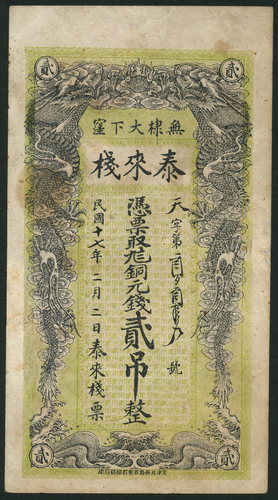 貳 貳
無棣大下窪
泰來棧
天字第 號
憑票取 銅元錢貳吊整
民國十七年二月二日泰來棧票
貳 貳